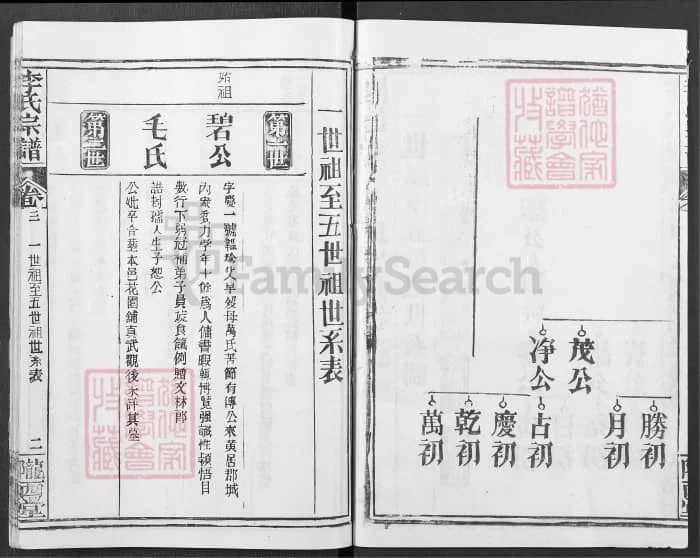 茂公
净公
勝初
月初
占初
慶初
乾初
萬初
一世祖至五世祖世系表
始祖
第一世
碧公
毛氏
第二世
字雙一號韞珍父早
母萬氏苦節有傳公來黃居郡城
力学年十餘爲人傭書
博覽强識性頓悟目
數行下弱冠補弟子員旋食餼例贈文林郎
誥封孺人生子恕公
公妣卒合葬本邑花園鋪真武觀後未詳其墓
李氏宗譜
卷三
一世祖至五世祖世系表
二
隴西堂
FamilySearch
譜學會
收藏
譜學會
收藏